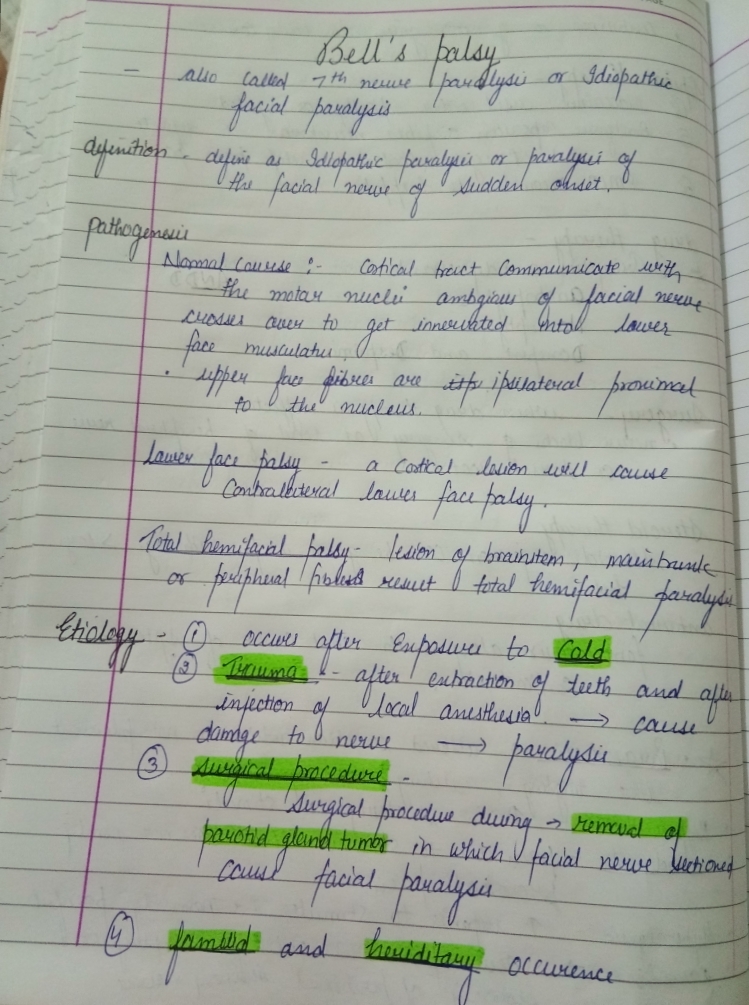 Bell's palsy
- also called 7th nerve paralysis or Idiopathic
facial paralysis
definition - define as Idiopathic paralysis or paralysis of
the facial nerve of sudden onset.
pathogenesis
Normal course :- Cortical tract communicate with
the motar nuclei ambgious of facial nerve
crosses over to get innervated into lower
face musculatus.
• upper face fibres are ipsilateral proximal
to the nucleus.
Lower face palsy - a cortical lesion will cause
Contralateral lower face palsy.
Total hemifacial palsy - lesion of brainstem, main trunk
or peripheral fibres result total hemifacial paralysis
Etiology - ① occurs after exposure to Cold
② Trauma - after extraction of teeth and after
injection of local anesthesia → cause
damage to nerve → paralysis
③ Surgical procedure -
Surgical procedure during → removal of
parotid gland tumor in which facial nerve sectioned
cause facial paralysis
④ and hereditary occurence